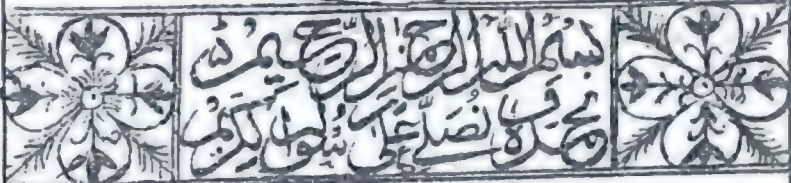 بسم الله الرحمن الرحيم
نحمده و نصلی علی رسوله الکریم